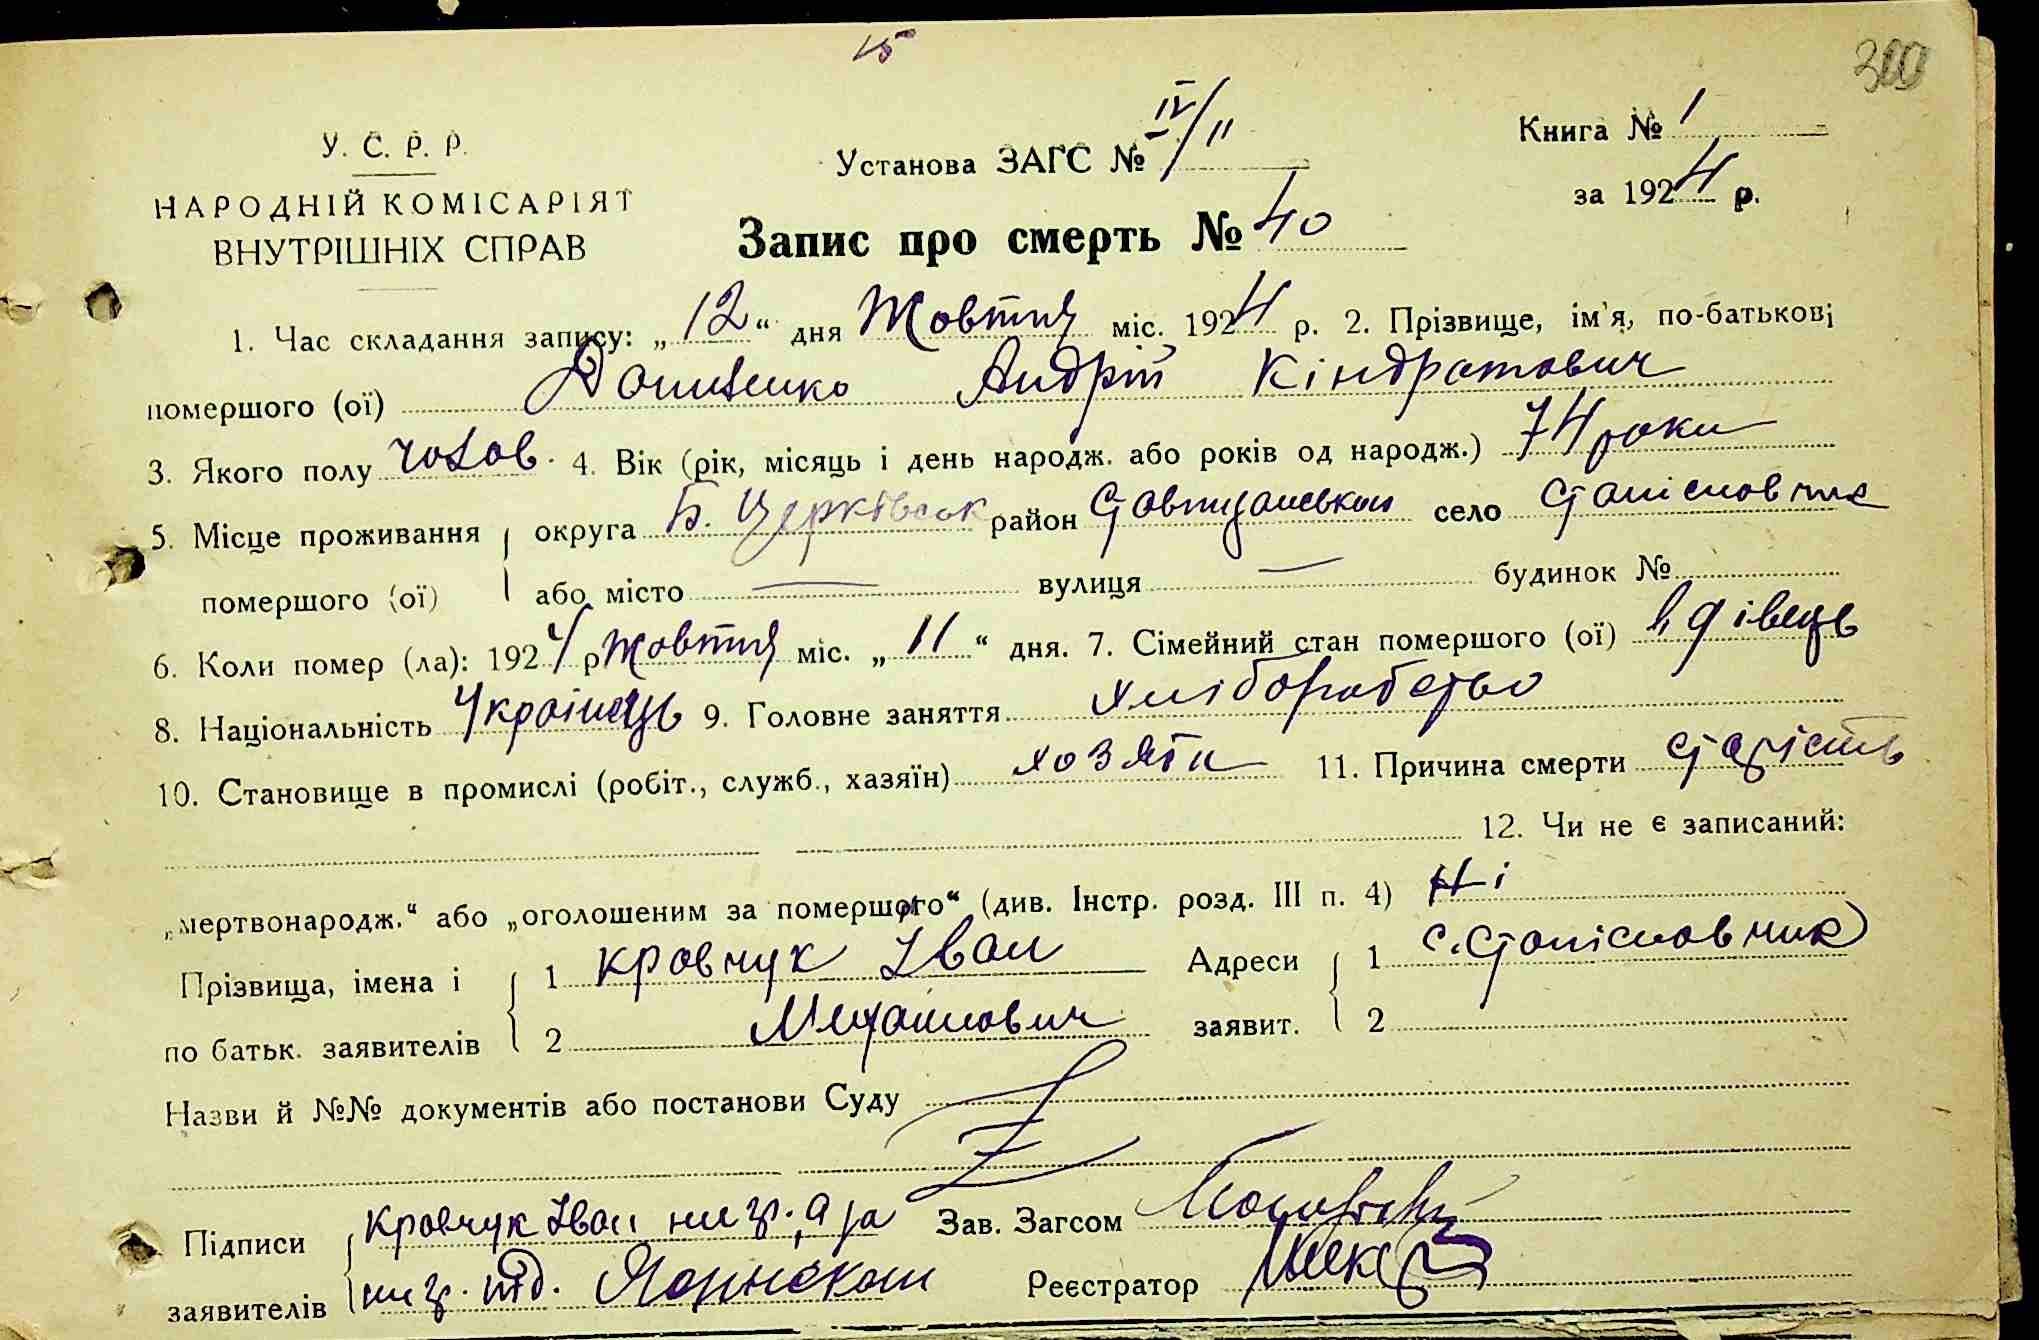 15
300
У. С. Р. Р.
НАРОДНІЙ КОМІСАРІЯТ
ВНУТРІШНІХ СПРАВ
Установа ЗАГС № IV/11
Книга № 1
за 1924 р.
Запис про смерть № 40
1. Час складання запису: „12“ дня Жовтня міс. 1924 р. 2. Прізвище, ім'я, по-батькові
помершого (ої) Андрій Кіндратович
3. Якого полу чолов. 4. Вік (рік, місяць і день народж. або років од народж.) 74 роки
5. Місце проживання округа Б. Церківськ район Ставищанський село
помершого (ої) або місто — вулиця — будинок №
6. Коли помер (ла): 1924 р Жовтня міс. „11“ дня. 7. Сімейний стан помершого (ої) вдівець
8. Національність Українець 9. Головне заняття хліборобство
10. Становище в промислі (робіт., служб., хазяїн) хозяїн 11. Причина смерти старість
12. Чи не є записаний:
„мертвонародж.“ або „оголошеним за помершого“ (див. Інстр. розд. III п. 4) Ні
Прізвища, імена і 1 Кравчук Іван Адреси 1 с. Станіславчик
по батьк. заявителів 2 Михайлович заявит. 2
Назви й №№ документів або постанови Суду
Підписи Кравчук Іван Зав. Загсом
заявителів Реєстратор